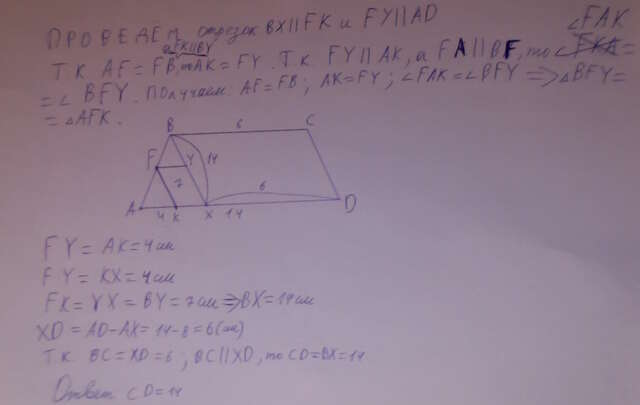 ПРОВЕДЕМ отрезок BX||FK и FY||AD
а FK||BY
∠FAK
Т.К. AF = FB, то AK = FY. Т.К. FY||AK, а FA||BF, то ∠FKA =
= ∠BFY. Получаем: AF = FB; AK = FY; ∠FAK = ∠BFY => △BFY =
= △AFK.
B 6 C
F Y 14
7 6
A 4 K X 14 D
FY = AK = 4 см
FY = KX = 4 см
FK = YX = BY = 7 см => BX = 14 см
XD = AD - AX = 14 - 8 = 6 (см)
Т.К. BC = XD = 6, BC||XD, то CD = BX = 14
Ответ CD = 14